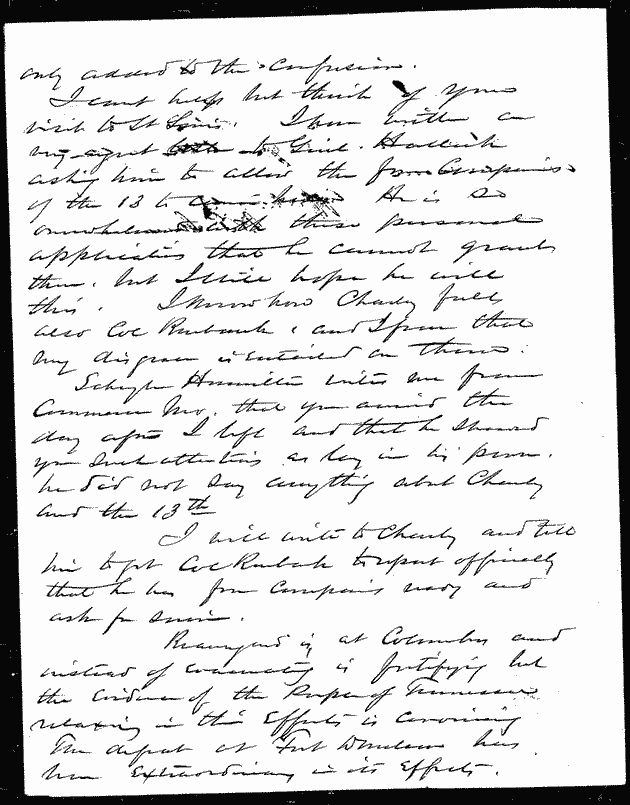 only added to the confusion.
I cant help but think of your
visit to St Louis. I have written an
to Genl. Halleck
asking him to allow the four Companies
of the 13 to He is so
overwhelmed with these personal
applications that he cannot grant
them, but I still hope he will
this. I know how Charley feels
also Col Burbank, and I fear that
my disgrace is entailed on them.
Schuyler Hamilton writes me from
Commerce Mo. that you arrived the
day after I left and that he showed
you such attentions as lay in his power.
he did not say anything about Charley
and the 13th
I will write to Charley and tell
him to get Col Burbank to report officially
that he has four Companies ready and
ask for service.
Beauregard is at Columbus and
instead of evacuating is fortifying but
the evidence of the People of Tennessee
relaxing in their Efforts is convincing
The defeat at Fort Donelson has
been Extraordinary in its Effects.